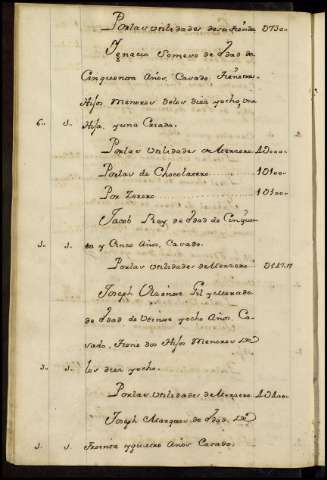 Por las Utilidades de su tienda D730..
Ignacio Romero de Edad de
Cinquenta Años, Casado, tiene tres
Hijos Menores de los diez y ocho, una
6.. J. Hija, y una Criada.
Por las Utilidades de Mercero
Por las de Chocolatero 1 D100..
Por Zerero 1 D100..
Jacob Roy de Edad de Cinquen
J. J. ta y Cinco Años, Casado.
Por las Utilidades de Mercero
Joseph Gil y
de Edad de Veinte y ocho Años, Ca
sado, tiene dos Hijos Menores de
J.. J. los diez y ocho.
Por las Utilidades de Mercero
Joseph Marques de Edad de
J. J. treinta y quatro Años Casado.